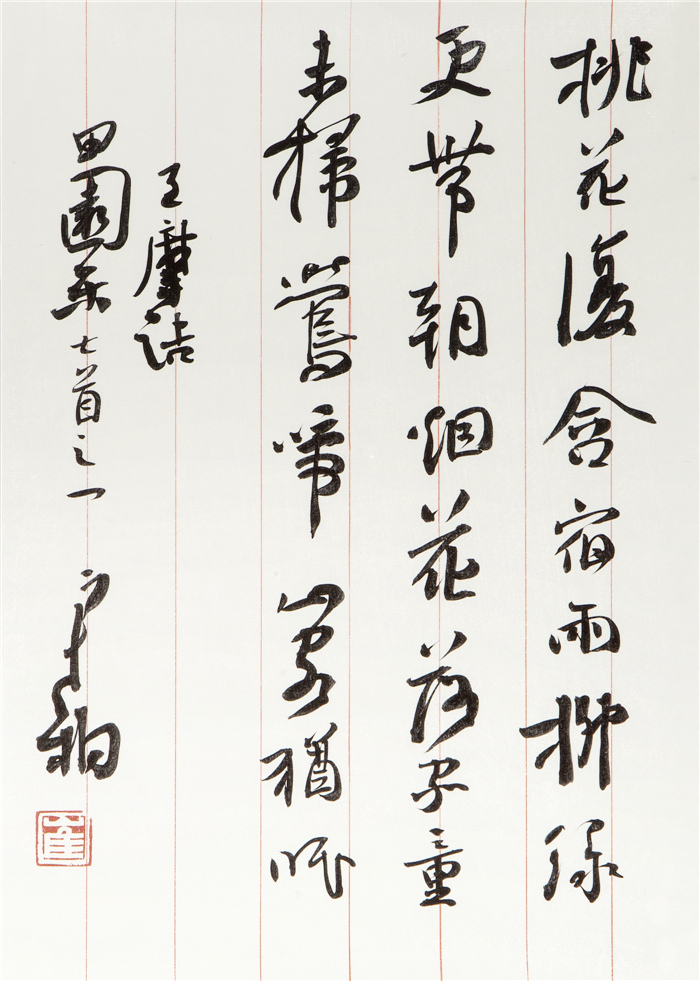 桃花復含宿雨柳綠
更帶朝烟花落家童
未掃鶯啼山客猶眠
王摩詰
田園樂七首之一 寒柏
崔